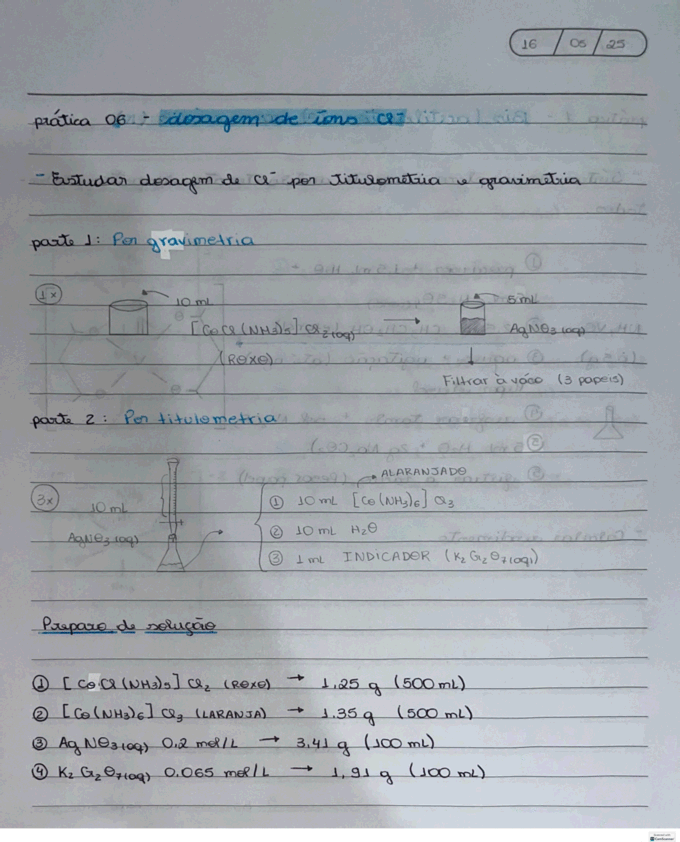 16 / 05 / 25
prática 06 - dosagem de íons Cl⁻
- Estudar dosagem de Cl⁻ por titulometria e gravimetria
parte 1: Por gravimetria
1x
10 mL
5 mL
[CoCl(NH3)5]Cl2(aq) → AgNO3(aq)
(ROXO)
Filtrar à vácuo (3 papeis)
parte 2: Por titulometria
ALARANJADO
3x
10 mL
① 10 mL [Co(NH3)6]Cl3
② 10 mL H2O
AgNO3(aq)
③ 1 mL INDICADOR (K2Cr2O7(aq))
Preparo de solução
① [CoCl(NH3)5]Cl2 (ROXO) → 1.25 g (500 mL)
② [Co(NH3)6]Cl3 (LARANJA) → 1.35 g (500 mL)
③ AgNO3(aq) 0.2 mol/L → 3.41 g (100 mL)
④ K2Cr2O7(aq) 0.065 mol/L → 1,91 g (100 mL)